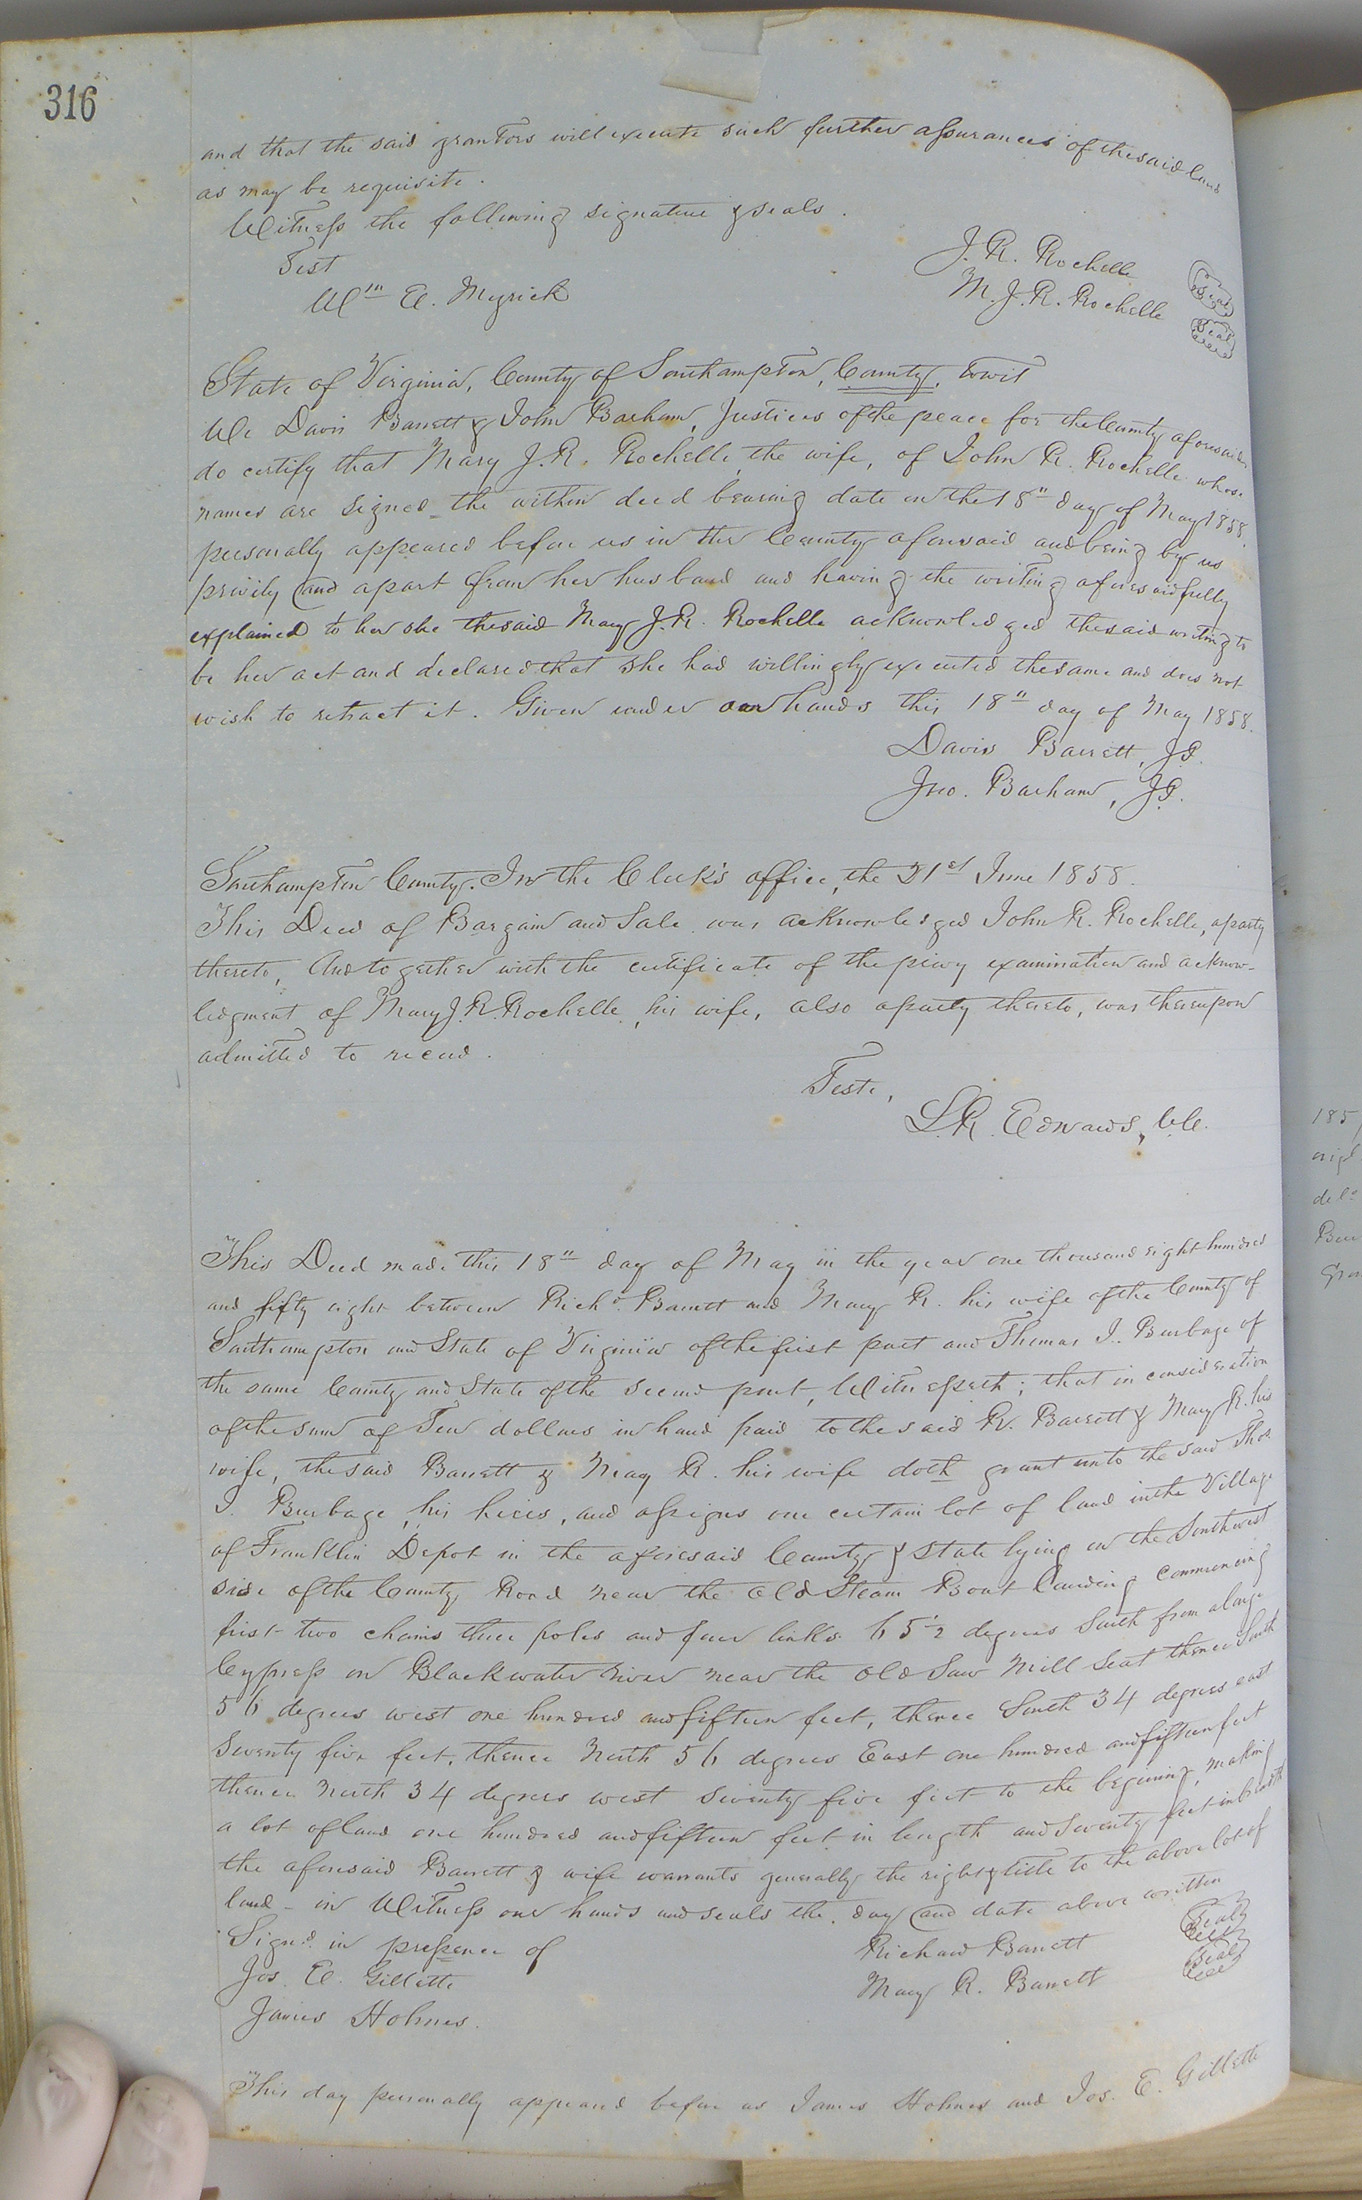 316
and that the said grantors will execute such further assurances of the said land
as may be requisite.
Witness the following signature & seals.
Test
J. R. Rochelle Seal
Wm E. Myrick
M. J. R. Rochelle Seal
State of Virginia, County of Southampton, County, towit
We Davis Barrett & John Barham, Justices of the peace for the County aforesaid
do certify that Mary J. R. Rochelle, the wife, of John R. Rochelle whose
names are signed the within deed bearing date on the 18th day of May 1858.
personally appeared before us in the County aforesaid and being by us
privily and apart from her husband and having the writing aforesaid fully
explained to her she the said Mary J. R. Rochelle acknowledged the said writing to
be her act and declared that she had willingly executed the same and does not
wish to retract it. Given under our hands this 18th day of May 1858.
Davis Barrett, J.P.
Jno. Barham, J.P.
Southampton County. In the Clerk's office, the 21st June 1858.
This Deed of Bargain and Sale was acknowledged John R. Rochelle, a party
thereto, And together with the certificate of the privy examination and acknow-
ledgment of Mary J. R. Rochelle, his wife, also a party thereto, was thereupon
admitted to record.
Teste,
L. R. Edwards, C.C.
This Deed made this 18th day of May in the year one thousand eight hundred
and fifty eight between Richd. Barrett and Mary R. his wife of the County of
Southampton and State of Virginia of the first part and Thomas J. Burbage of
the same County and State of the second part, Witnesseth; that in consideration
of the sum of Ten dollars in hand paid to the said R. Barrett & Mary R. his
wife, the said Barrett & Mary R. his wife doth grant unto the said Thos.
J. Burbage, his heirs, and assigns one certain lot of land in the Village
of Franklin Depot in the aforesaid County & State lying on the Southwest
side of the County Road near the old Steam Boat Landing commencing
first two chains three poles and four links 65½ degrees South from a large
Cypress on Blackwater river near the old Saw Mill Seat thence South
56 degrees west one hundred and fifteen feet, thence South 34 degrees east
seventy five feet, thence North 56 degrees East one hundred and fifteen feet
thence North 34 degrees west seventy five feet to the begining, making
a lot of land one hundred and fifteen feet in length and seventy feet in breadth
the aforesaid Barrett & wife warrants generally the right & title to the above lot of
land - in Witness our hands and seals the day and date above written
Signd. in presence of
Richard Barrett Seal
Jos. E. Gillette
Mary R. Barrett Seal
James Holmes.
This day personally appeared before us James Holmes and Jos. E. Gillette
185